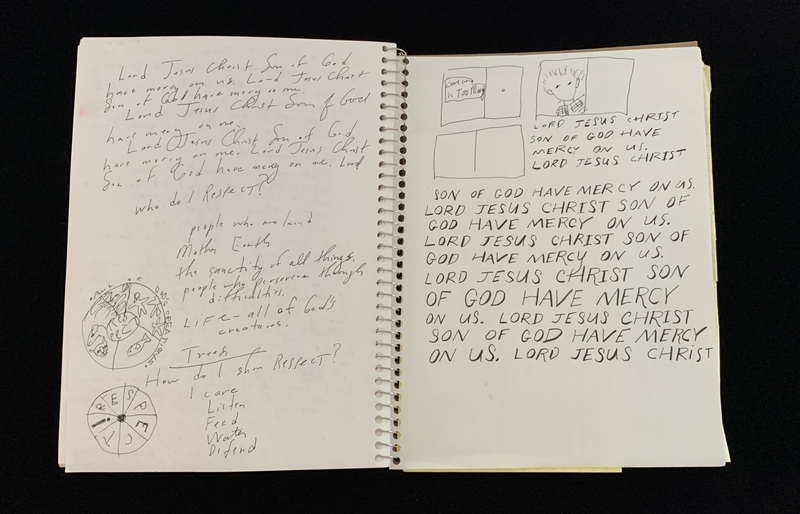 Lord Jesus Christ Son of God
have mercy on us. Lord Jesus Christ
Son of God have mercy on me.
Lord Jesus Christ Son of God
have mercy on me.
Lord Jesus Christ Son of God
have mercy on me. Lord Jesus Christ
Son of God have mercy on me. Lord
who do I Respect?
people who are kind
Mother Earth
the sanctity of all things.
people who persevere through
difficulties.
Life - all of God's
creatures.
Trees
How do I show RESPECT?
I care
Listen
Feed
Water
Defend
RESPECT!
is Too Many
LORD JESUS CHRIST
SON OF GOD HAVE
MERCY ON US.
LORD JESUS CHRIST
SON OF GOD HAVE MERCY ON US.
LORD JESUS CHRIST SON OF
GOD HAVE MERCY ON US.
LORD JESUS CHRIST SON OF
GOD HAVE MERCY ON US.
LORD JESUS CHRIST SON
OF GOD HAVE MERCY
ON US. LORD JESUS CHRIST
SON OF GOD HAVE MERCY
ON US. LORD JESUS CHRIST